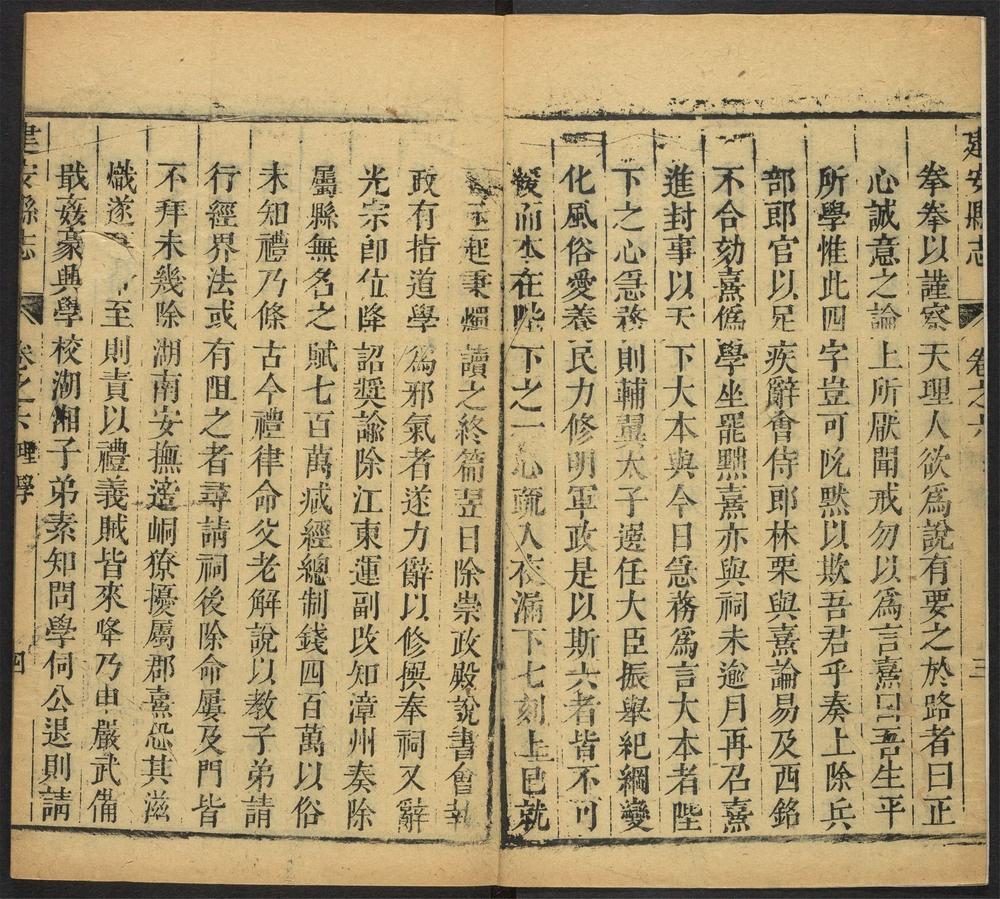 建安縣志
卷之六
三
拳拳以謹察天理人欲爲說有要之於路者曰正
心誠意之論上所厭聞戒勿以爲言熹曰吾生平
所學惟此四字豈可吮黙以欺吾君乎奏上除兵
部郎官以足疾辭會侍郎林栗與熹論易及西銘
不合劾熹僞學坐罷黜熹亦與祠未逾月再召熹
進封事以天下大本與今日急務爲言大本者陛
下之心急務則輔翼太子選任大臣振舉紀綱變
化風俗愛養民力修明軍政是以斯六者皆不可
緩而本在陛下之一心疏入夜漏下七刻上已就
亟起秉燭讀之終篇翌日除崇政殿說書會執
政有指道學爲邪氣者遂力辭以修撰奉祠又辭
光宗卽位降詔奬諭除江東運副改知漳州奏除
屬縣無名之賦七百萬减經總制錢四百萬以俗
未知禮乃條古今禮律命父老解說以教子弟請
行經界法或有阻之者尋請祠後除命屢及門皆
不拜未幾除湖南安撫遙峒獠擾屬郡熹恐其滋
熾遂 至則責以禮義賊皆來降乃申嚴武備
戢姦豪興學校湖湘子弟素知問學伺公退則請
建安縣志
卷之六
理學
四